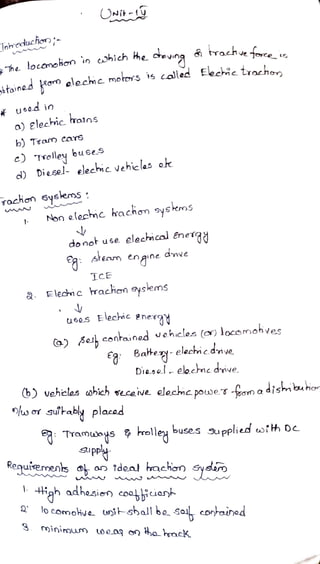 Unit-IV
Introduction:-
* The locomotion in which the driving & tractive force is
obtained from electric motors is called Electric traction
* used in
a) Electric trains
b) Tram cars
c) Trolley buses
d) Diesel-electric vehicles etc
Traction systems:
1. Non electric traction systems
↓
do not use electrical energy
Eg: steam engine drive
ICE
2. Electric traction systems
↓
uses Electric energy
(a) self contained vehicles (or) locomotives
Eg: Battery-electric drive
Diesel-electric drive.
(b) vehicles which receive electric power from a distribution
n/w or suitably placed
eg: Tramways & trolley buses supplied with DC
supply.
Requirements of an ideal traction system
1. High adhesion coefficient
2. locomotive unit shall be self contained
3. minimum wear on the track